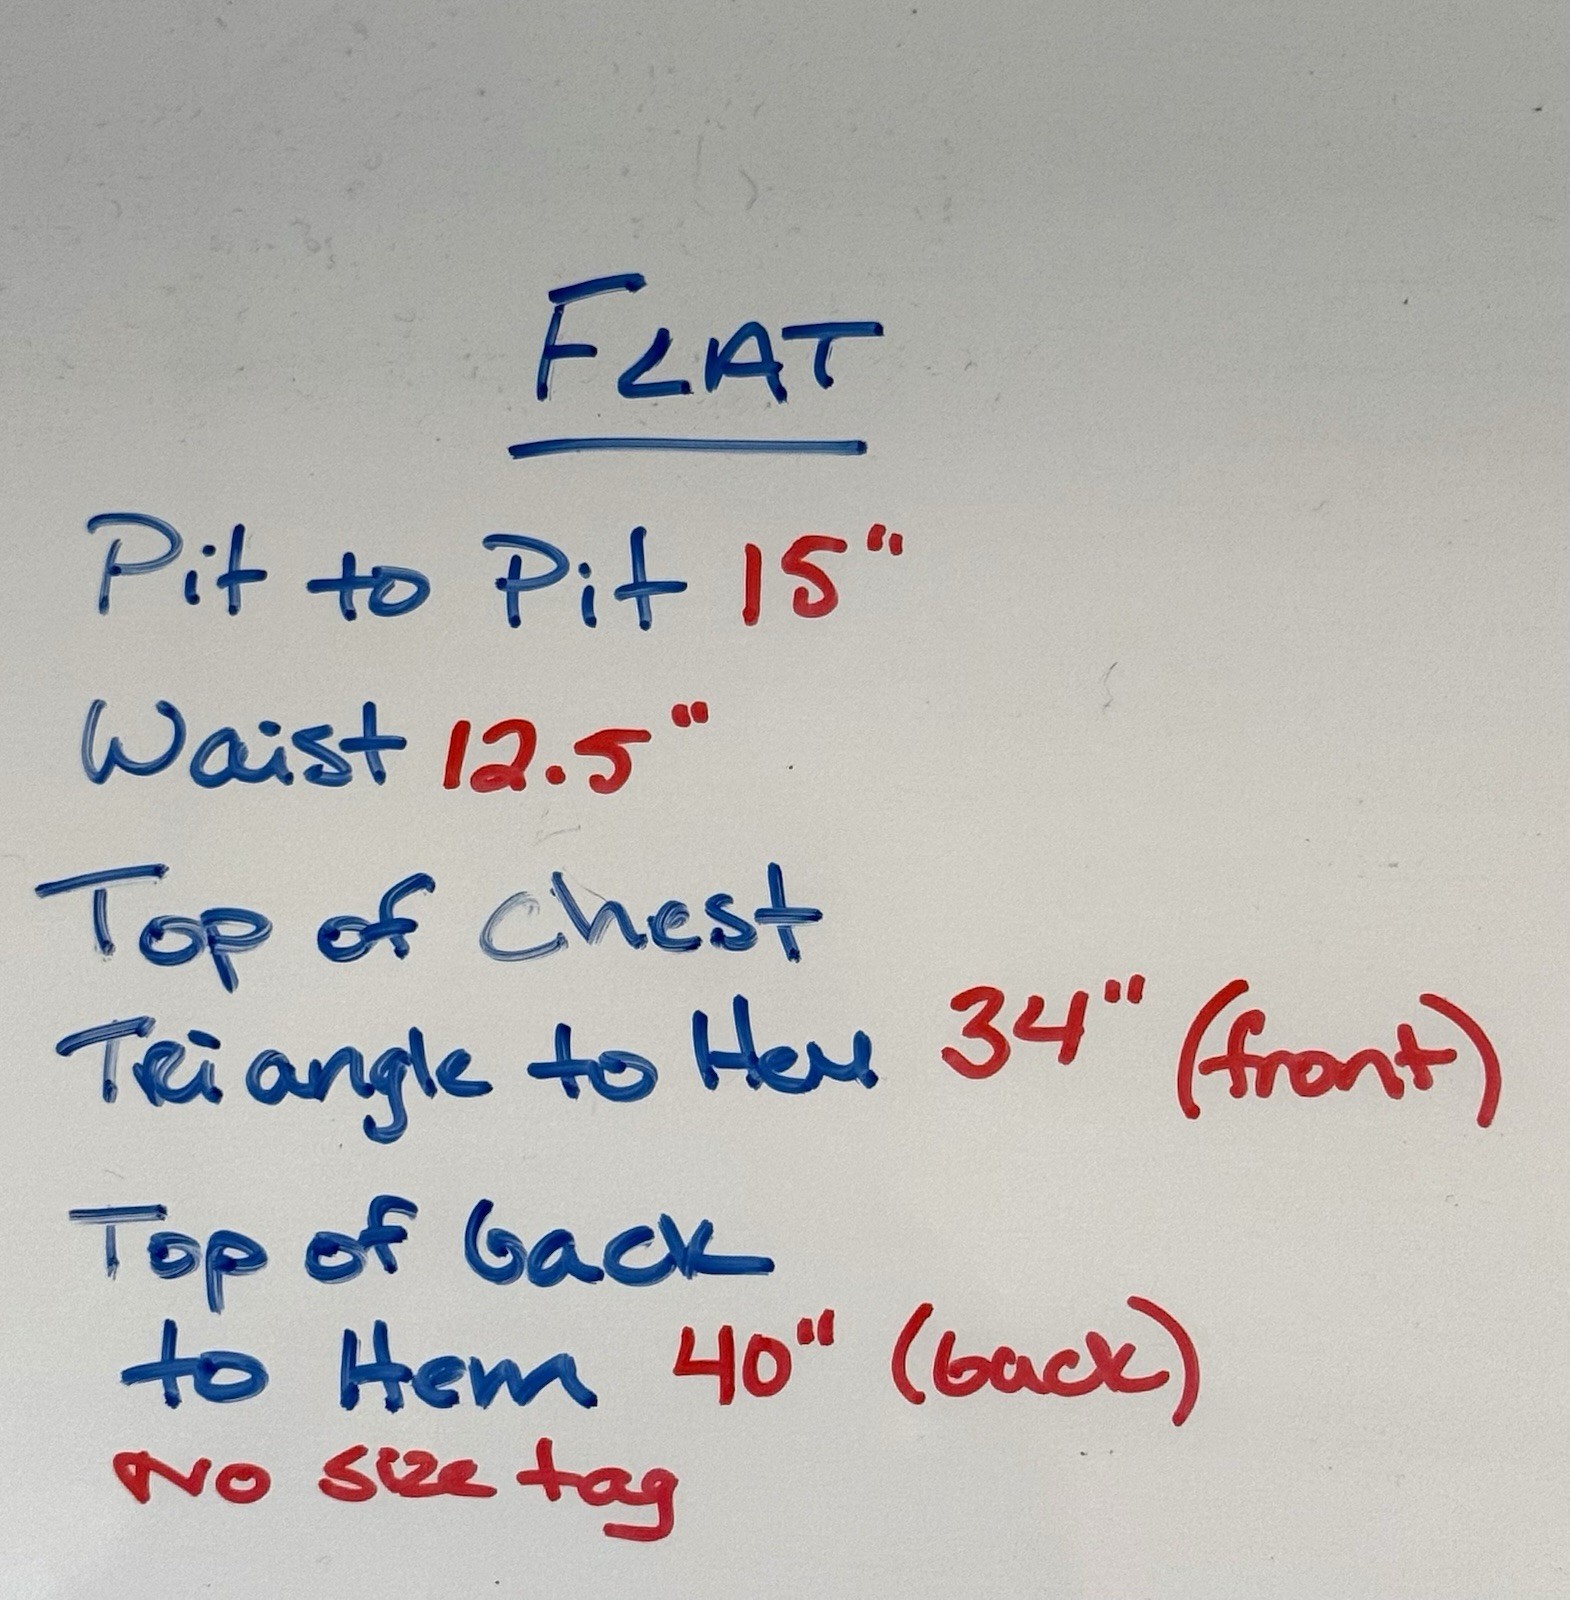 FLAT
Pit to Pit 15"
Waist 12.5"
Top of Chest
Triangle to Hem 34" (front)
Top of back
to Hem 40" (back)
No size tag